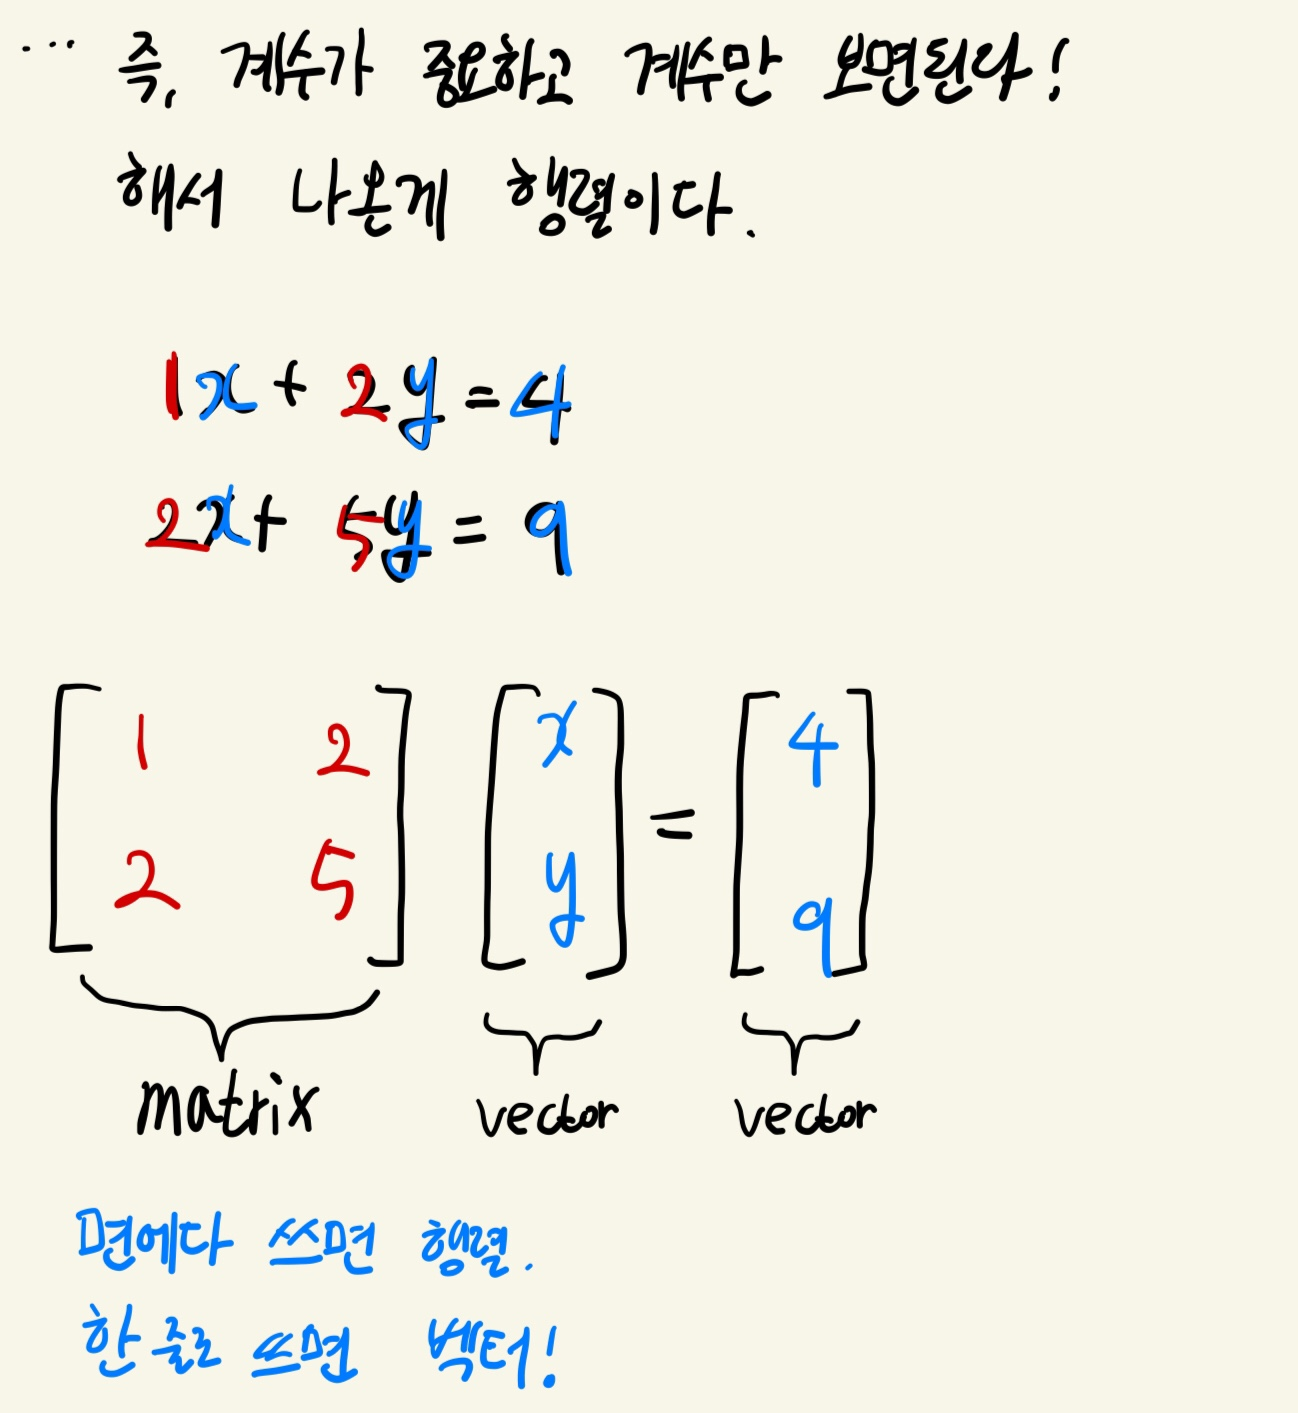 ... 즉, 계수가 중요하고 계수만 보면된다!
해서 나온게 행렬이다.
1x + 2y = 4
2x + 5y = 9
[1 2] [x] = [4]
[2 5] [y] [9]
matrix vector vector
면에다 쓰면 행렬.
한 줄로 쓰면 벡터!